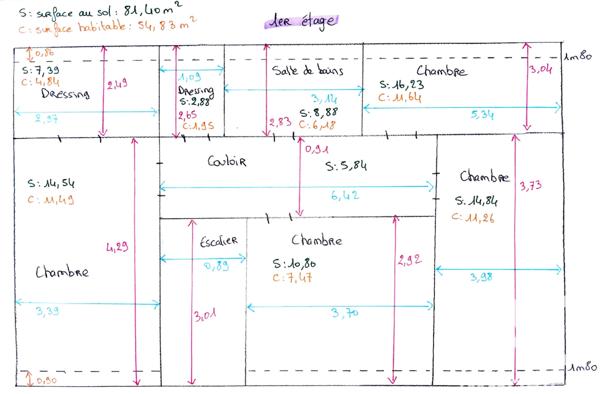 S: surface au sol: 81,40 m²
C: surface habitable: 54,83 m²
1ER étage
0,86
1m80
S: 7,39
C: 4,84
Dressing
2,49
2,97
1,09
Dressing
S: 2,88
2,65
C: 1,95
Salle de bains
3,14
S: 8,88
2,83
C: 6,18
Chambre
S: 16,23
C: 11,64
5,34
3,04
0,91
Couloir
S: 5,84
6,42
S: 14,54
C: 11,49
4,29
Chambre
3,39
0,90
Escalier
0,89
3,01
Chambre
S: 10,80
C: 7,47
2,92
3,70
Chambre
S: 14,84
C: 11,26
3,73
3,98
1m80